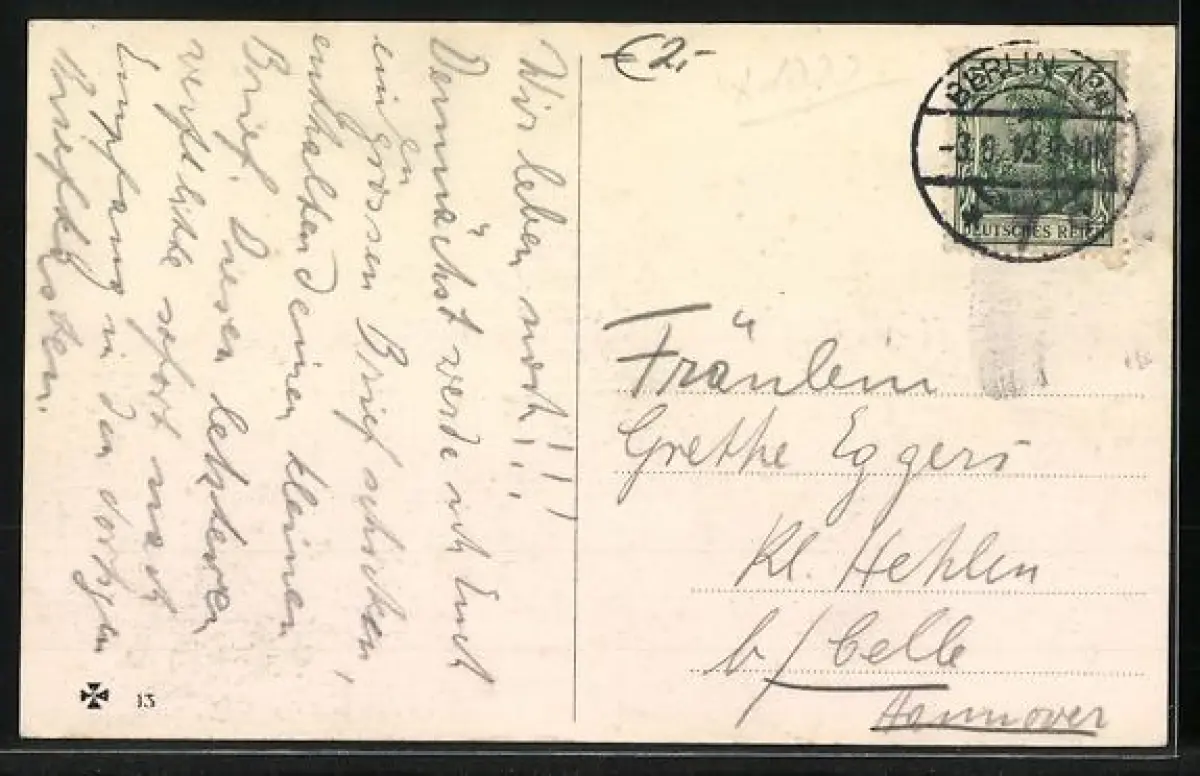 Wir leben noch!!!
Demnächst werde ich Euch
einen
grossen Brief schicken,
enthaltend einen kleinen
Brief. Diesen letzteren
sofort nach
Empfang in den dortigen
Briefkasten.
13
€ 2,-
BERLIN
-3.6.13.
DEUTSCHES REICH
Fräulein
Grethe Eggers
Kl. Hehlen
b/ Celle
Hannover